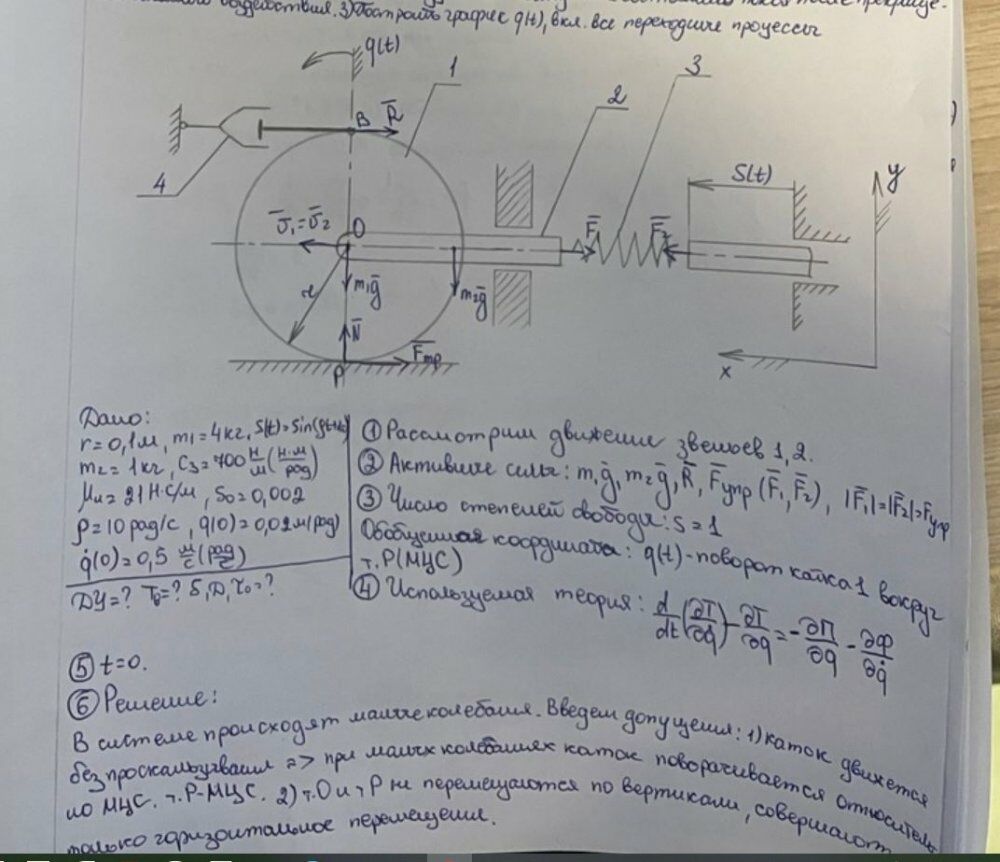 воздействия. 3) Построить график q(t), вкл. все переходные процессы
q(t)
1
3
2
B
R̅
4
S(t)
y
υ̅₁=υ̅₂
O
F̅₁
F̅₂
r
m₁g̅
m₂g̅
N̅
F̅тр
P
x
Дано:
r=0,1м, m₁=4кг, S(t)=
m₂=1кг, C₃=700 Н/м (Н·м/рад)
21 Н·с/м, S₀=0,002
ρ=10 рад/с, q(0)=0,02м(рад)
q̇(0)=0,5 м/с (рад/с)
ДУ=? =?
① Рассмотрим движение звеньев 1,2.
② Активные силы: m₁g̅, m₂g̅, R̅, F̅упр (F̅₁, F̅₂), |F̅₁|=|F̅₂|=Fупр
③ Число степеней свободы: s=1
Обобщенная координата: q(t)-поворот катка 1 вокруг
т.P(МЦС)
④ Используемая теория: d/dt(∂T/∂q̇)-∂T/∂q=-∂П/∂q-∂Ф/∂q̇
⑤ t=0.
⑥ Решение:
В системе происходят малые колебания. Введем допущения: 1) каток движется
без проскальзывания => при малых колебаниях каток поворачивается относитель
но МЦС. т.P-МЦС. 2) т.O и т.P не перемещаются по вертикали, совершают
только горизонтальное перемещения.